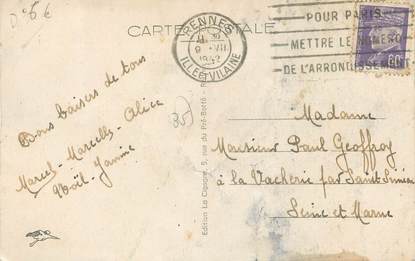 CARTE POSTALE
RENNES
9 VII
1942
ILLE ET VILAINE
POUR PARIS
METTRE LE NUMERO
DE L'ARRONDISSEMENT
Bons baisers de tous
Marcel - Marcelle - Alice
Noël - Jannie
35
Edition La Cigogne, 5, rue du Pré-Botté - R
Madame
Monsieur Paul Geoffroy
à la Vacherie par Saint Siméon
Seine et Marne